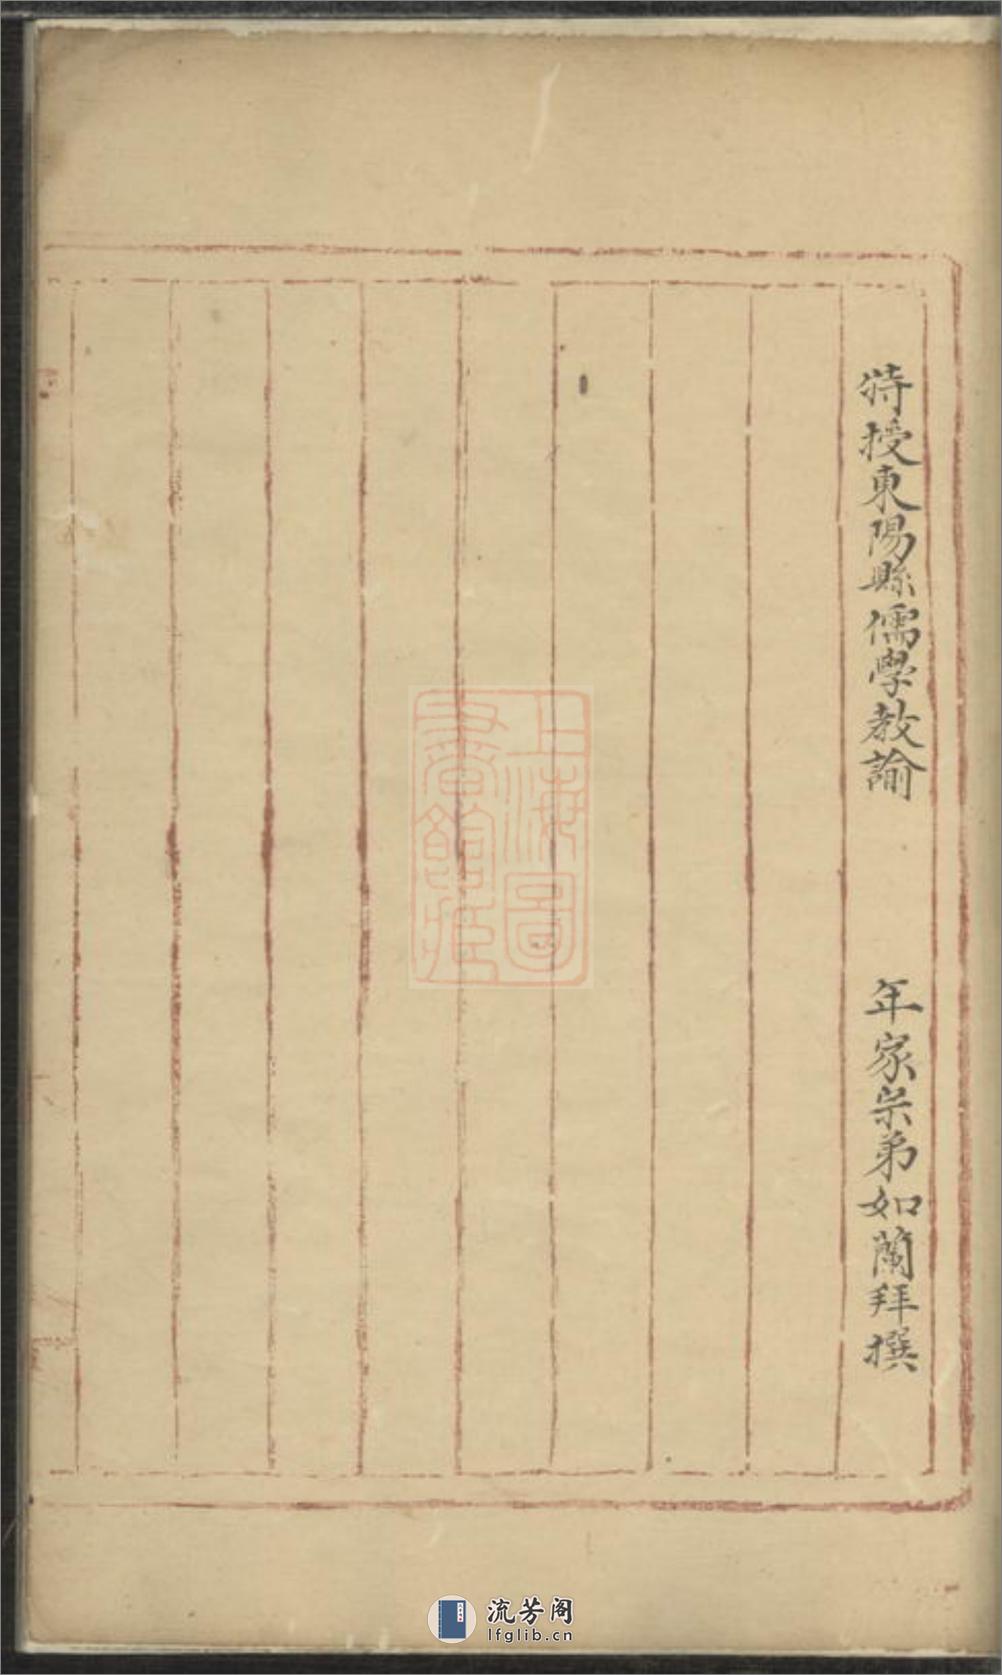 特授東陽縣儒學教諭 年家宗弟如蘭拜撰
上海圖
書館藏
流芳阁
lfglib.cn